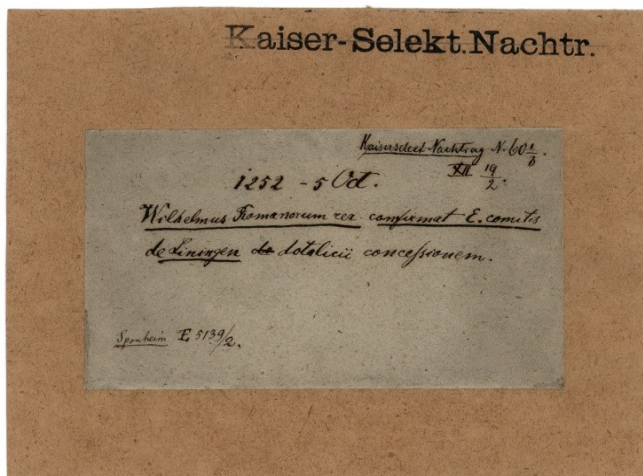 Kaiser-Selekt.Nachtr.
Kaiserselect-Nachtrag N. 60 1/6
XII 19/2.
1252 - 5 Oct.
Wilhelmus Romanorum rex confirmat E. comitis
de Liningen de dotalicii concessionem.
Sponheim E 5139/2.